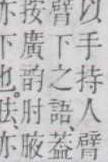 以手持人臂
臂下之語、蓋
按廣韵肘腋
亦下也。胠亦